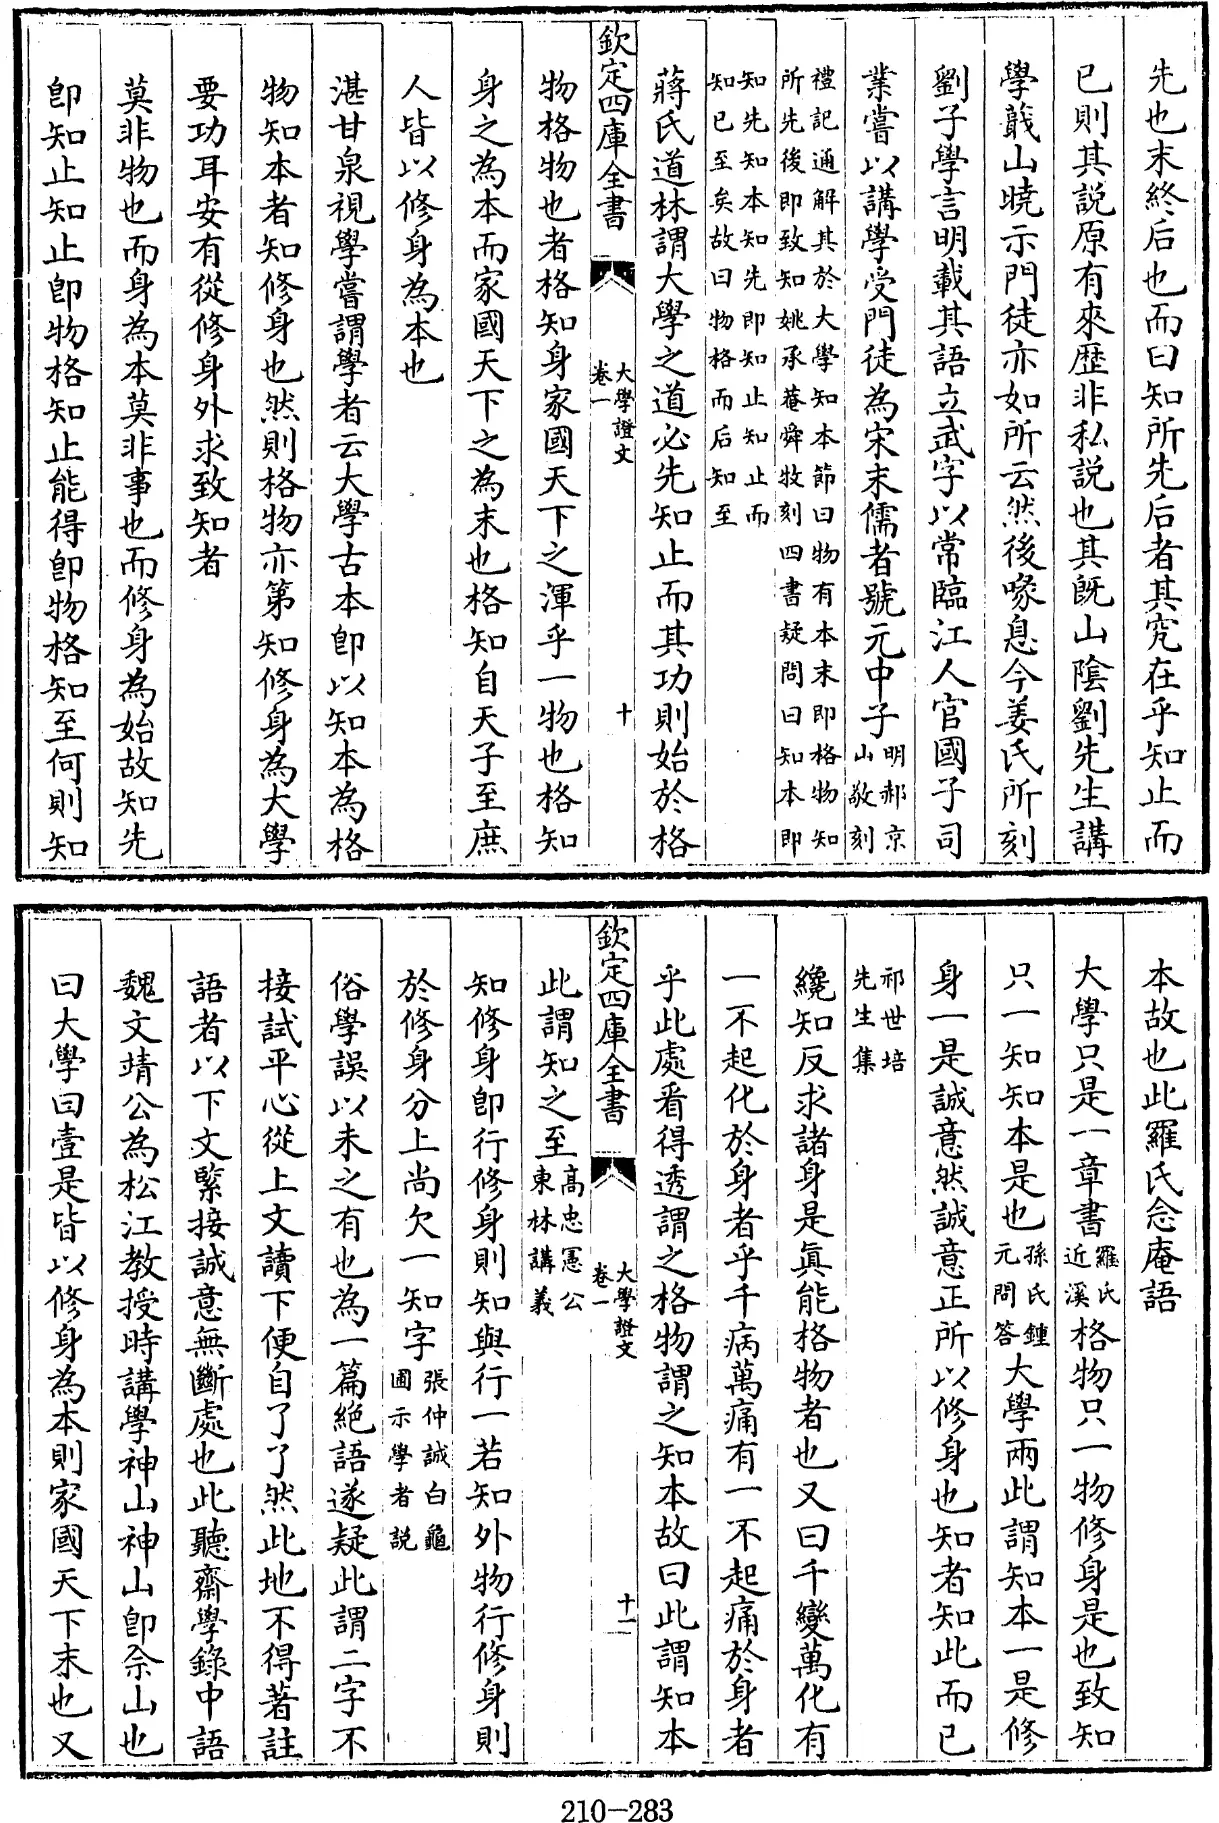 先也末終后也而曰知所先后者其究在乎知止而
已則其說原有來歴非私說也其旣山陰劉先生講
學蕺山曉示門徒亦如所云然後喙息今姜氏所刻
劉子學言明載其語立武字以常臨江人官國子司
業嘗以講學受門徒為宋末儒者號元中子明郝京
山敬刻
禮記通解其於大學知本節曰物有本末即格物知
所先後即致知姚承菴舜牧刻四書疑問曰知本即
知先知本知先即知止知止而
知已至矣故曰物格而后知至
蔣氏道林謂大學之道必先知止而其功則始於格
欽定四庫全書
大學證文
卷一
十
物格物也者格知身家國天下之渾乎一物也格知
身之為本而家國天下之為末也格知自天子至庶
人皆以修身為本也
湛甘泉視學嘗謂學者云大學古本卽以知本為格
物知本者知修身也然則格物亦第知修身為大學
要功耳安有從修身外求致知者
莫非物也而身為本莫非事也而修身為始故知先
卽知止知止卽物格知止能得卽物格知至何則知
本故也此羅氏念庵語
大學只是一章書羅氏
近溪格物只一物修身是也致知
只一知知本是也孫氏鍾
元問答大學兩此謂知本一是修
身一是誠意然誠意正所以修身也知者知此而已
祁世培
先生集
纔知反求諸身是真能格物者也又曰千變萬化有
一不起化於身者乎千病萬痛有一不起痛於身者
乎此處看得透謂之格物謂之知本故曰此謂知本
欽定四庫全書
大學證文
卷一
十一
此謂知之至高忠憲公
東林講義
知修身卽行修身則知與行一若知外物行修身則
於修身分上尚欠一知字張仲誠白龜
圃示學者說
俗學誤以未之有也為一篇絕語遂疑此謂二字不
接試平心從上文讀下便自了了然此地不得著註
語者以下文緊接誠意無斷處也此聽齋學錄中語
魏文靖公為松江教授時講學神山神山卽佘山也
曰大學曰壹是皆以修身為本則家國天下末也又
210-283